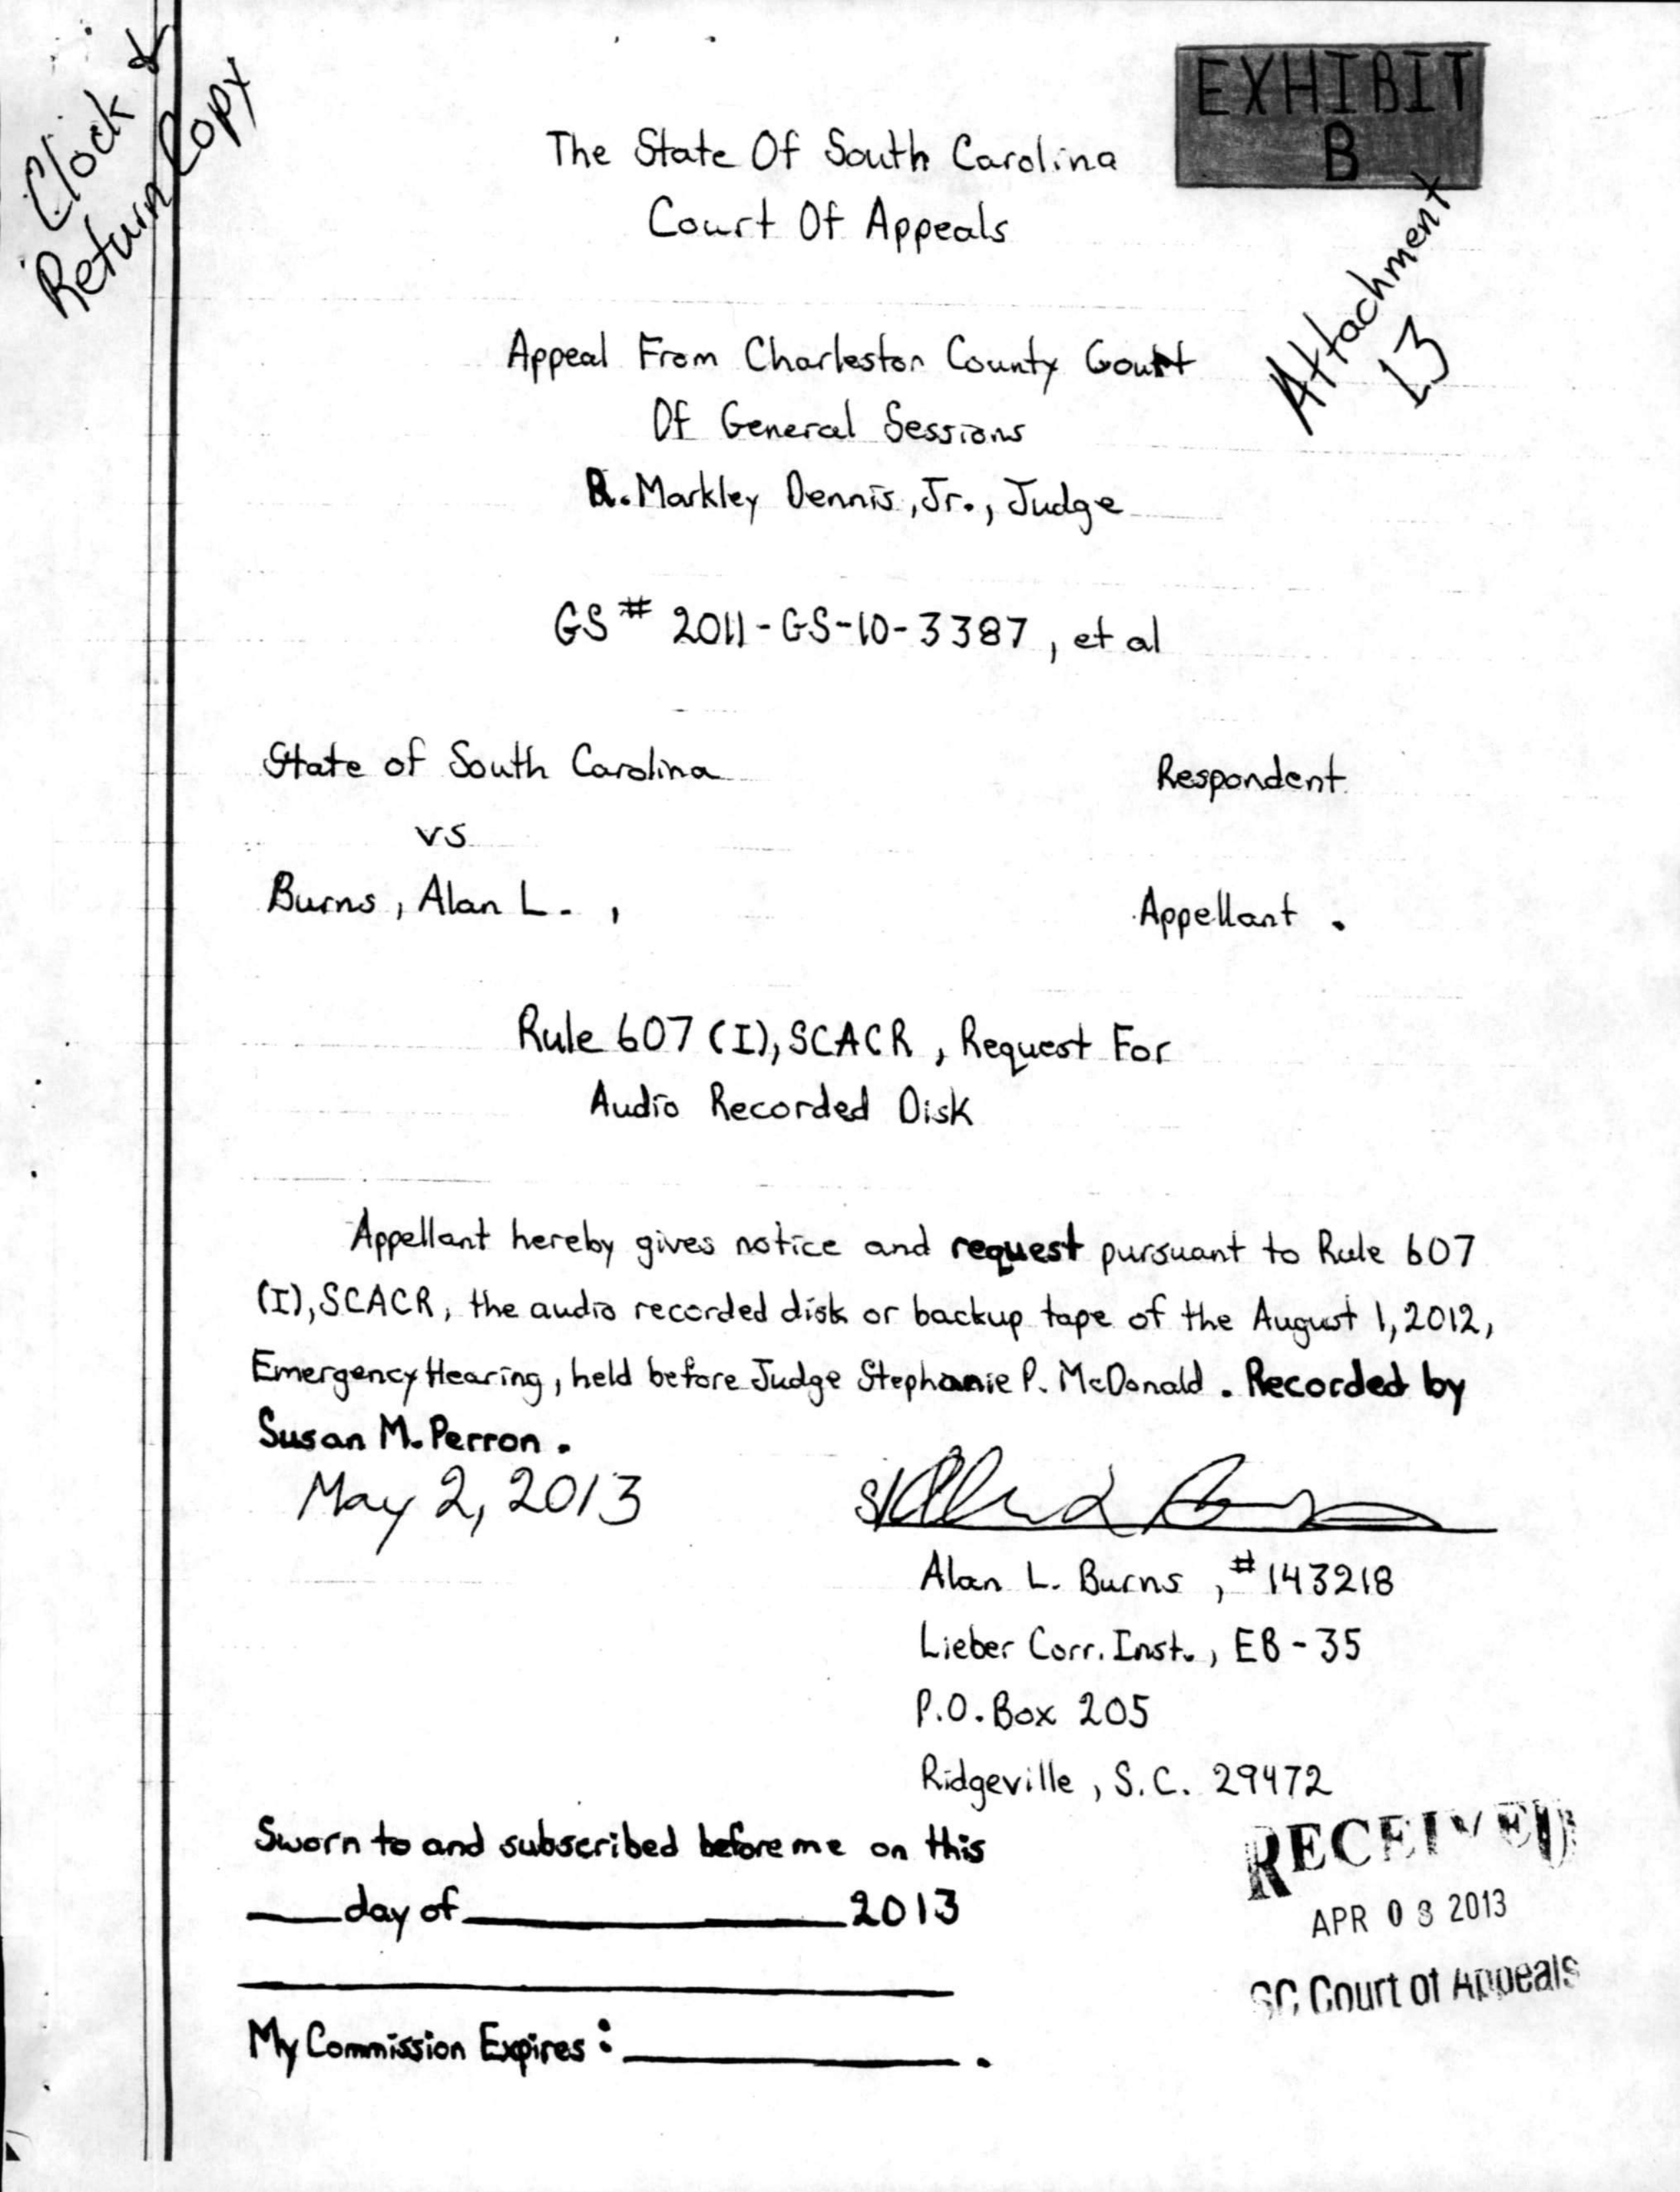 Clock &
Return Copy
EXHIBIT
B
Attachment
13
The State Of South Carolina
Court Of Appeals
Appeal From Charleston County Court
Of General Sessions
R. Markley Dennis, Jr., Judge
GS# 2011-GS-10-3387, et al
State of South Carolina Respondent
vs
Burns, Alan L. , Appellant .
Rule 607 (I), SCACR, Request For
Audio Recorded Disk
Appellant hereby gives notice and request pursuant to Rule 607
(I), SCACR, the audio recorded disk or backup tape of the August 1, 2012,
Emergency Hearing, held before Judge Stephanie P. McDonald. Recorded by
Susan M. Perron.
May 2, 2013 s/ Alan L Burns
Alan L. Burns, #143218
Lieber Corr. Inst., EB-35
P.O. Box 205
Ridgeville, S.C. 29472
Sworn to and subscribed before me on this
___ day of ___ 2013
My Commission Expires: ___.
RECEIVED
APR 08 2013
SC Court of Appeals